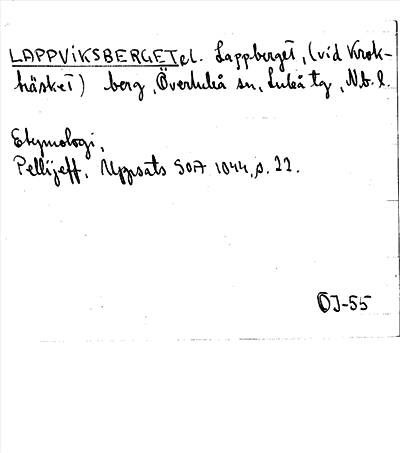 LAPPVIKSBERGET el. Lappberget, (vid Krok-
träsket) berg, Överluleå sn, Luleå tg, N.b.l.
Etymologi,
Pellijeff, Uppsats SOA 1044, s. 22.
OJ-55